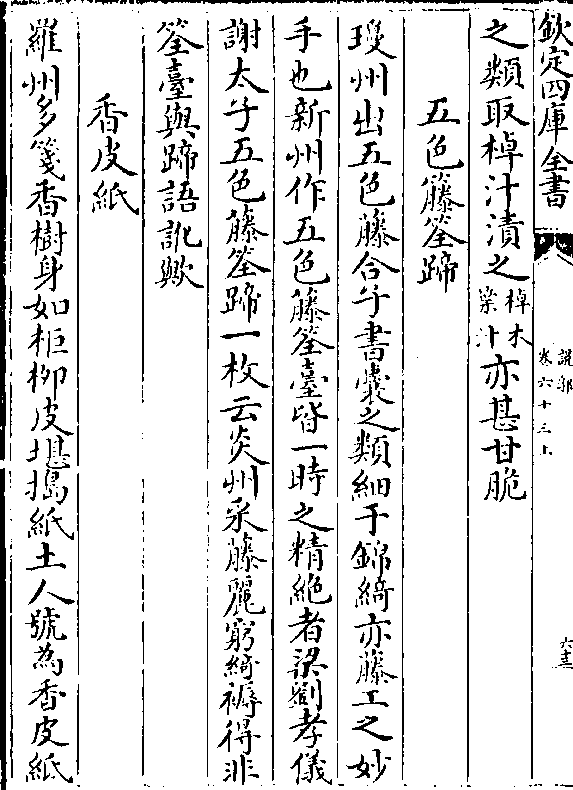 欽定四庫全書
說郛
卷六十三上
之類取樟汁漬之樟木葉汁亦甚甘脆
五色籐筌蹄
瓊州出五色藤合子書囊之類細于錦綺亦藤工之妙
手也新州作五色籐筌臺皆一時之精絶者梁劉孝儀
謝太子五色藤筌蹄一枚云炎州采藤麗窮綺褥得非
筌臺與蹄語訛歟
香皮紙
羅州多箋香樹身如柜柳皮堪搗紙土人號為香皮紙